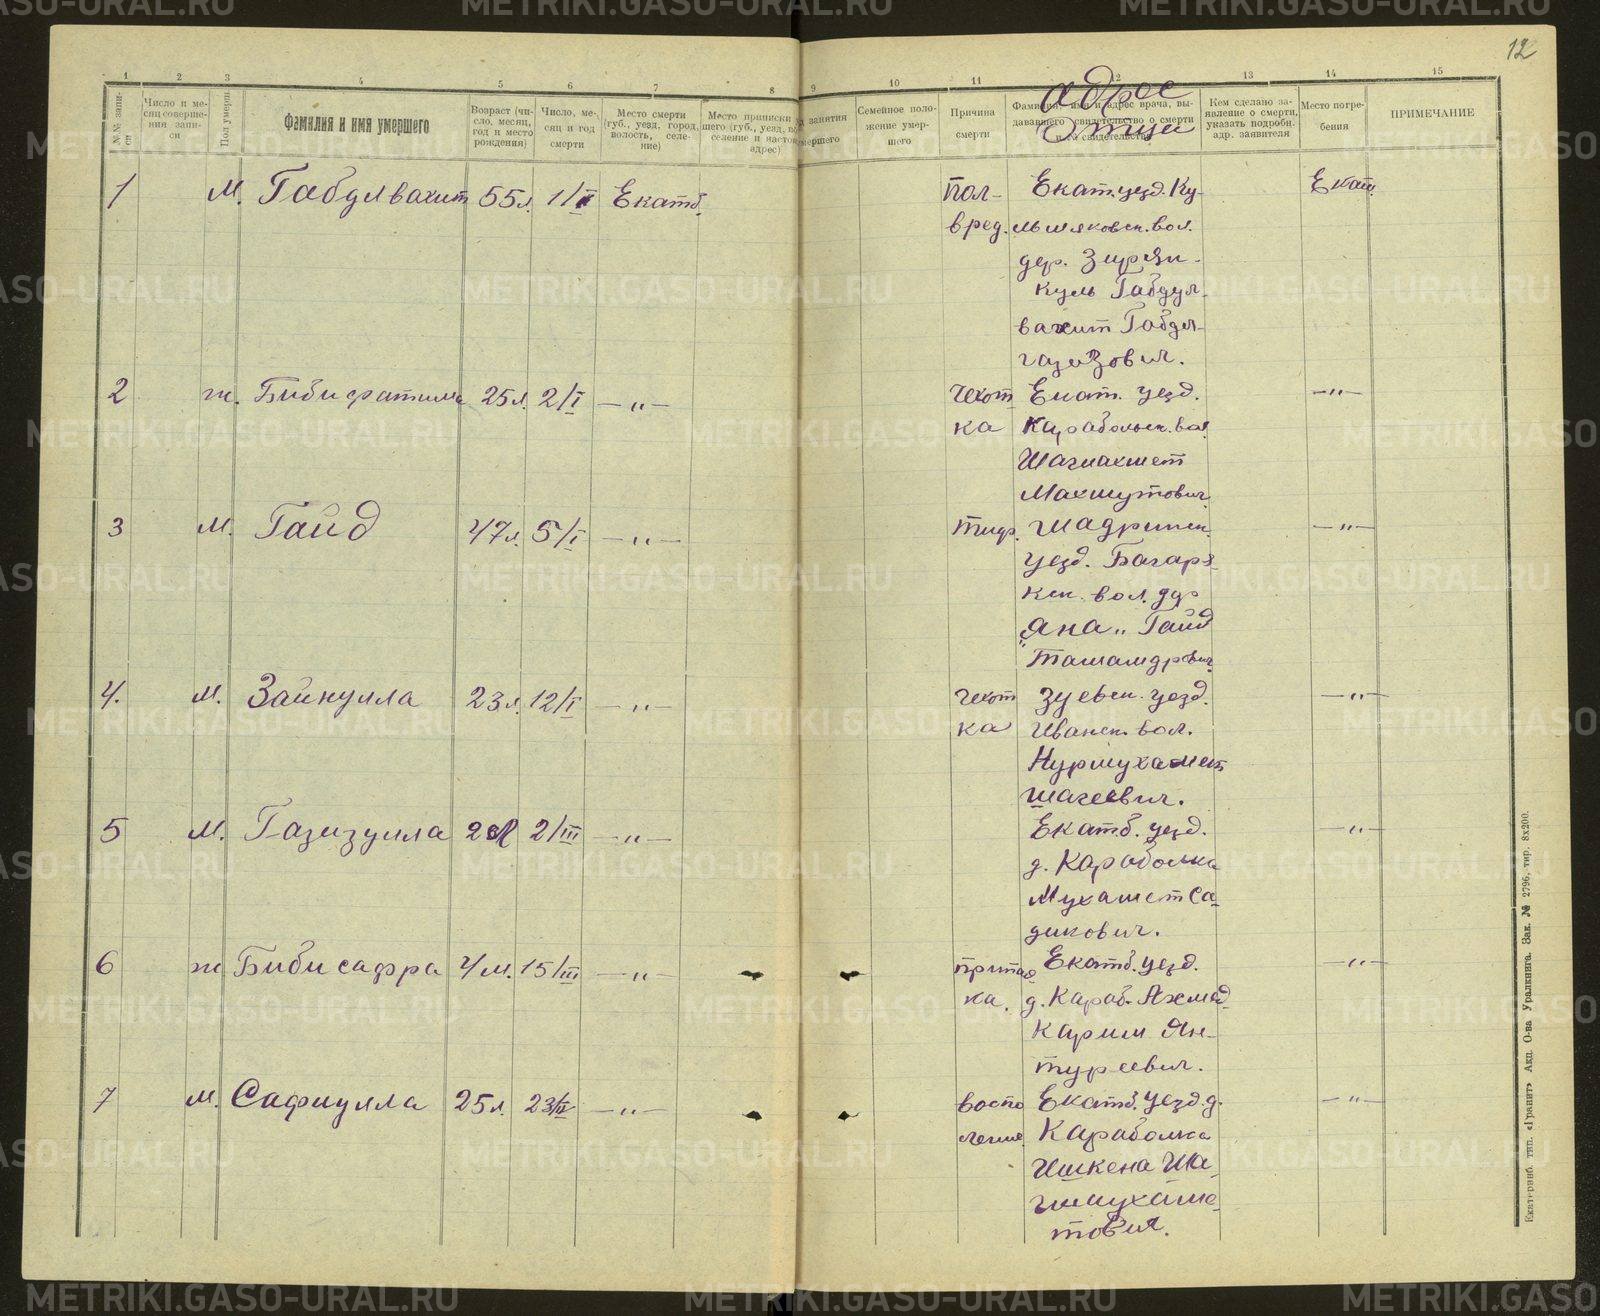 12
1 2 3 4 5 6 7 8 9 10 11 12 13 14 15
№№ запи-
си
Число и ме-
сяц соверше-
ния запи-
си
Пол умерш.
Фамилия и имя умершего
Возраст (чи-
сло, месяц,
год и место
рождения)
Число, ме-
сяц и год
смерти
Место смерти
(губ., уезд, город,
волость, селе-
ние)
Место приписки
шего (губ., уезд,
селение и настоя
адрес)
занятия
мершего
Семейное поло-
жение умер-
шего
Причина
смерти
Фамилия, имя и адрес врача, вы-
дававшего свидетельство о смерти
свидетельства
адрес
Отца
Кем сделано за-
явление о смерти,
указать подробн.
адр. заявителя
Место погре-
бения
ПРИМЕЧАНИЕ
1 М. Габделвахит 55л. 1/I Екатб. Екат. уезд. Ку- Екат.
вред. льмяковск. вол.
дер.
куль Габдул-
вахит Габдел-
газизович.
2 ж. Бибифатима 25л. 2/I —"— чехот Екат. уезд. —"—
ка Карабольск. вол.
Шагиахмет
Махмутович
3 М. Гаид 47л. 5/I —"— тиф. Шадринск. —"—
уезд. Багаря-
кск. вол. дер
„Яна„ Гаид
4. М. Зайнулла 23л. 12/I —"— чехот уезд. —"—
ка вол.
Нурмухамет
Шагеевич.
5 М. Газизулла 2 2/III —"— Екатб. уезд. —"—
д. Караболка
Мухамет Са-
дикович.
6 ж Бибисафра 4 м. 15/III —"— припад Екатб. уезд. —"—
ка. д. Караб. Ахмад
Карим Ян-
туреевич.
7 М. Сафиулла 25л. —"— воспо Екатб. уезд. д. —"—
ление Караболка
Ишкена Ша-
гимухаме-
тович.
Екатеринб. тип. «Гранит» Акц. О-ва Уралкнига. Зак. № 2796, тир. 8х200.
METRIKI.GASO-URAL.RU